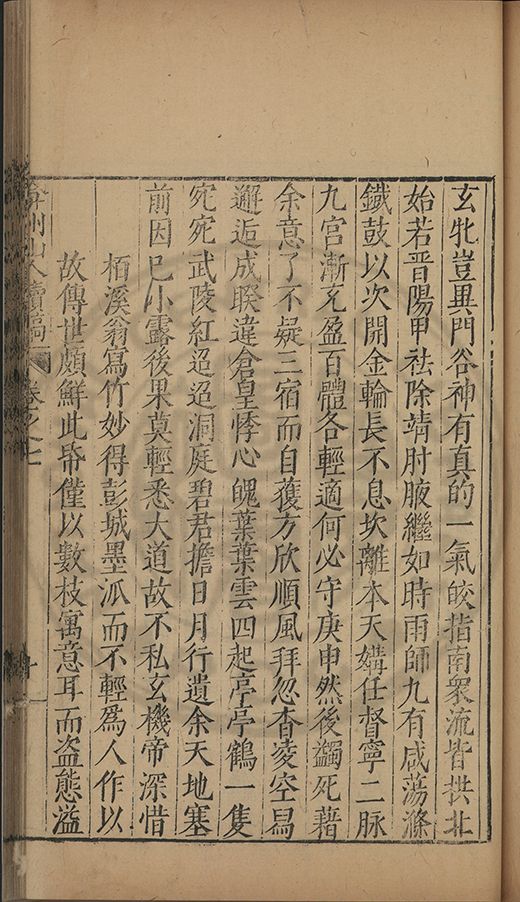 玄牝豈異門谷神有真的一氣皎指南衆流皆拱北
始若晋陽甲袪除靖肘腋繼如時雨師九有咸蕩滌
鐵鼓以次開金輪長不息坎離本天媾任督寧二脉
九宮漸充盈百體各輕適何必守庚申然後蠲死藉
余意了不疑三宿而自獲方欣順風拜忽杳凌空舄
邂逅成睽違倉皇悸心魄葉葉雲四起亭亭鶴一隻
宛宛武陵紅迢迢洞庭碧君擔日月行遺余天地塞
前因已小露後果莫輕悉大道故不私玄機帝深惜
栢溪翁寫竹妙得彭城墨派而不輕爲人作以
故傳世頗鮮此帋僅以數枝寓意耳而姿態溢
弇州山人續稿 卷之七 十